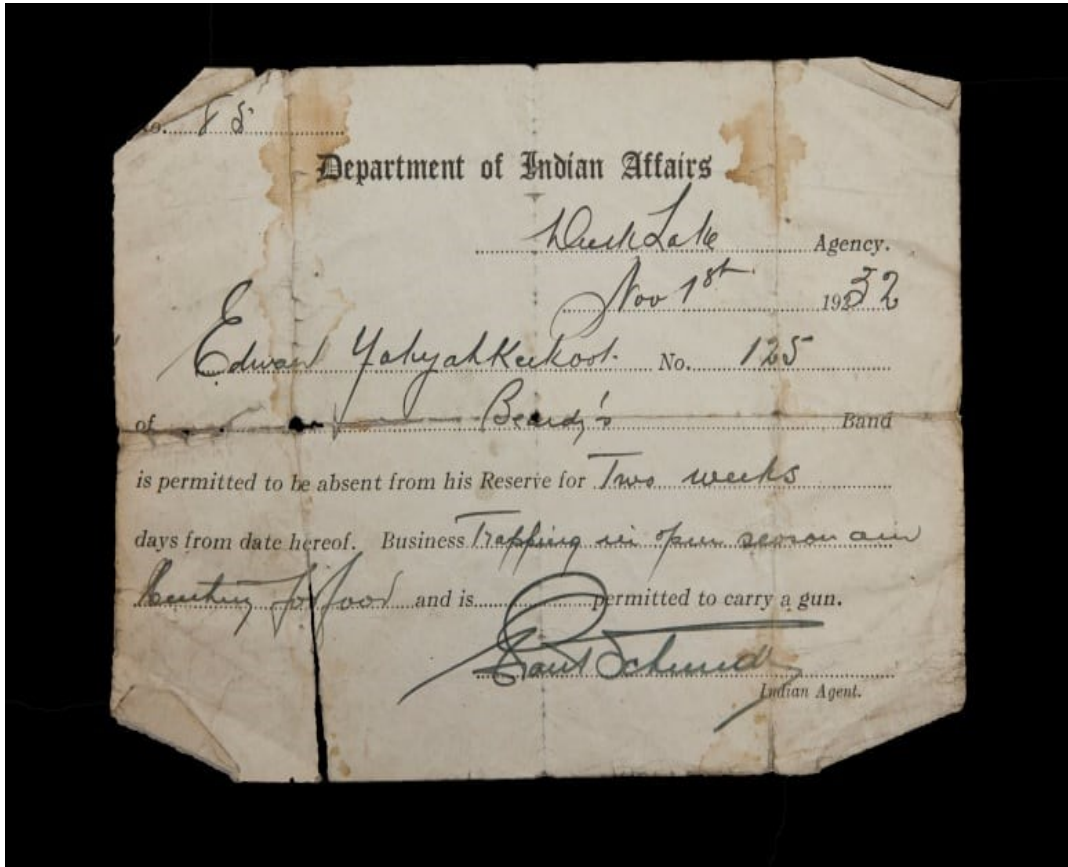 No. 85
Department of Indian Affairs
Duck Lake Agency.
Nov 1st 1932
Edward Yahyahkeekoot. No. 125
of Beardy's Band
is permitted to be absent from his Reserve for Two weeks
days from date hereof. Business Trapping in open season and
hunting for food and is permitted to carry a gun.
Schmidt
Indian Agent.